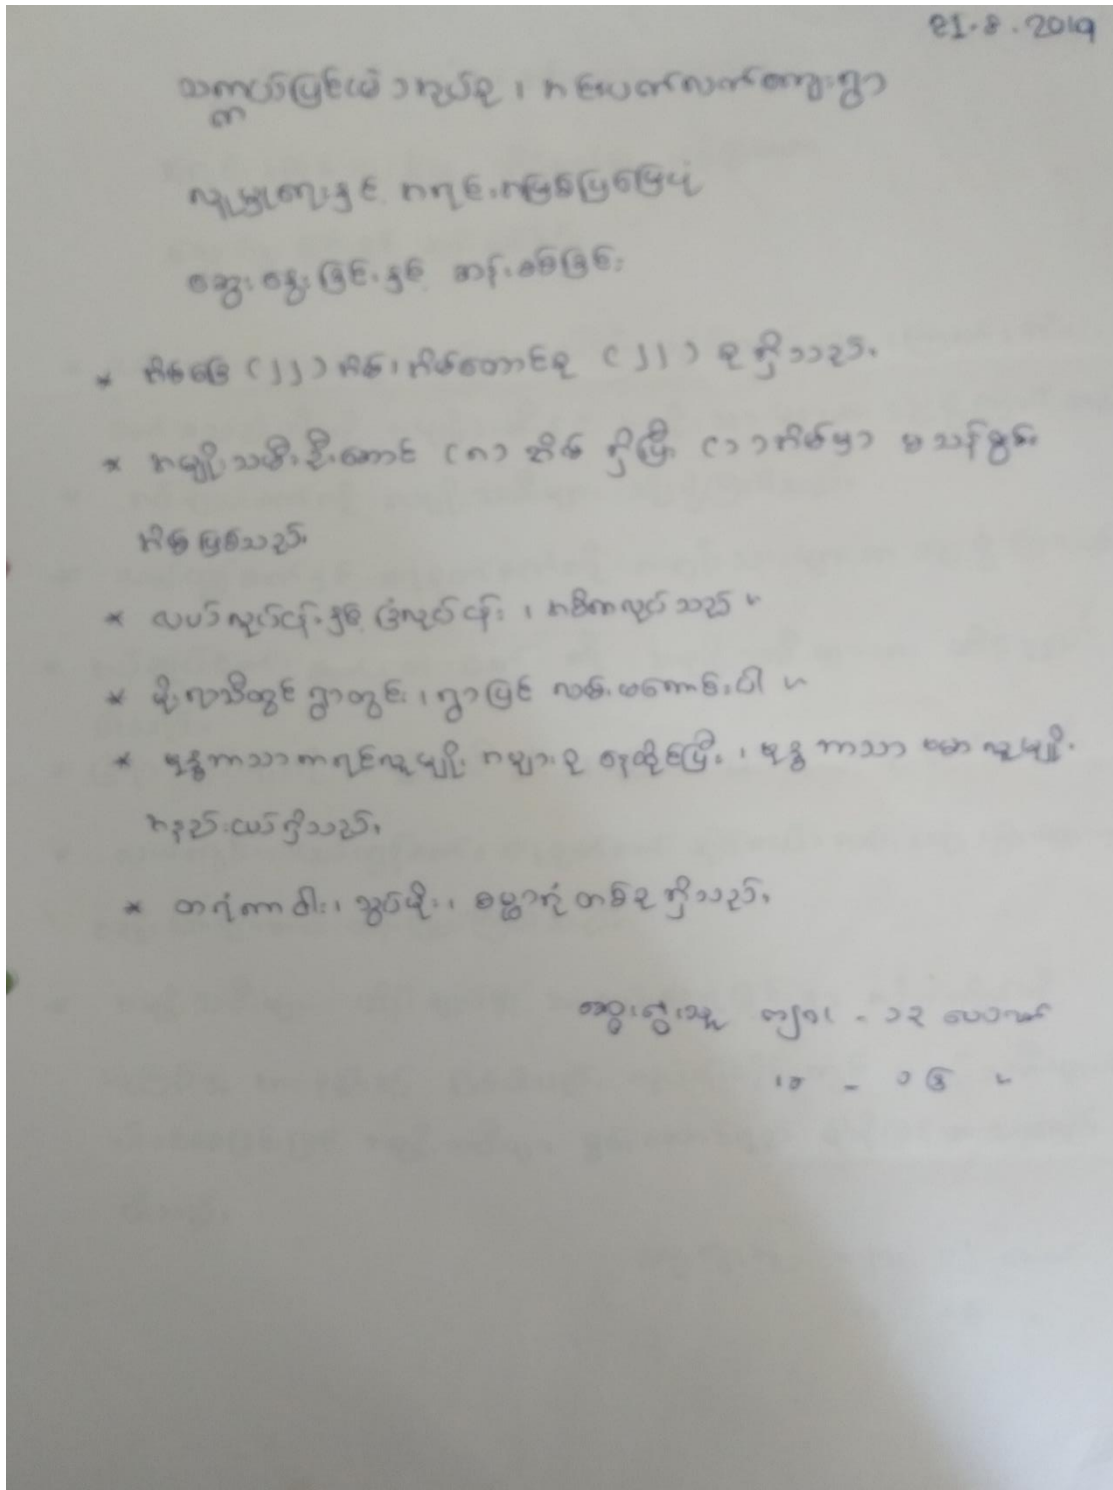 21.8.2019
လူမှုရေးနှင့် အရင်းအမြစ်ပြမြေပုံ
ဆွေးနွေးခြင်းနှင့် ဆန်းစစ်ခြင်း
* အိမ်ခြေ (၂၂) အိမ်၊ အိမ်ထောင်စု (၂၂) စု ရှိသည်။
* အမျိုးသမီးဦးဆောင် (၈) အိမ် ရှိပြီး (၁) အိမ်မှာ မသန်စွမ်း
အိမ်ဖြစ်သည်။
* လယ်လုပ်ငန်းနှင့် ခြံလုပ်ငန်း ၊ အဓိကလုပ်သည် ။
* မိုးရာသီတွင် ရွာတွင်း ၊ ရွာပြင် လမ်းမကောင်းပါ ။
* ဗုဒ္ဓဘာသာကရင်လူမျိုး အများစု နေထိုင်ပြီး ၊ ဗုဒ္ဓဘာသာ ဗမာလူမျိုး
အနည်းငယ်ရှိသည်။
* တရံကာဝါး ၊ သွပ်မိုး ၊ ဓမ္မာရုံ တစ်ခုရှိသည်။
ဆွေးနွေးသူ ကျား - ၁၃ ယောက်
မ - ၁၆ "